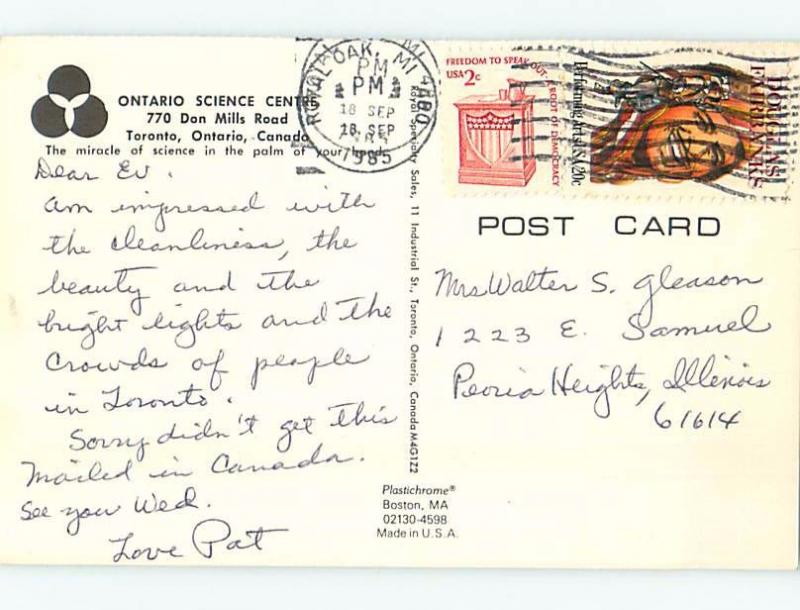 ONTARIO SCIENCE CENTRE
770 Don Mills Road
Toronto, Ontario, Canada
The miracle of science in the palm of your hand.
Dear Ev.
am impressed with
the cleanliness, the
beauty and the
bright lights and the
crowds of people
in Toronto.
Sorry didn't get this
mailed in Canada.
See you Wed.
Love Pat
ROYAL OAK, MI
PM
PM
18 SEP
18 SEP
1985
Royal Specialty Sales, 11 Industrial St., Toronto, Ontario, Canada M4G1Z2
Plastichrome®
Boston, MA
02130-4598
Made in U.S.A.
FREEDOM TO SPEAK OUT, A ROOT OF DEMOCRACY
USA 2c
Performing Arts USA 20c
DOUGLAS
FAIRBANKS
POST CARD
Mrs Walter S. Gleason
1223 E. Samuel
Peoria Heights, Illinois
61614